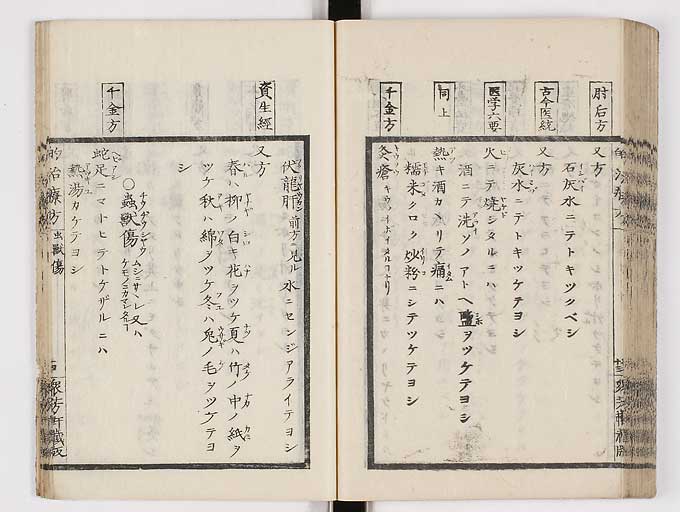 肘后方
又方
石灰水ニテトキツクベシ
古今医統
又方
灰水ニテトキツケテヨシ
医学六要
火ニテ焼シタルニハ
酒ニテ洗ソノアトヘ塩ヲツケテヨシ
同上
熱キ酒カヽリテ痛ニハ
糯米クロク炒粉ニシテツケテヨシ
千金方
灸瘡
伏龍肝前方ニ見ル水ニセンジアライテヨシ
資生經
又方
春ハ柳ノ白キ花ヲツケ夏ハ竹ノ中ノ紙ヲ
ツケ秋ハ綿ヲツケ冬ハ兎ノ毛ヲツケテヨシ
○蟲獸傷
千金方
蛇足ニマトヒテトケザルニハ
熱湯カケテヨシ
的治療方 虫獸傷